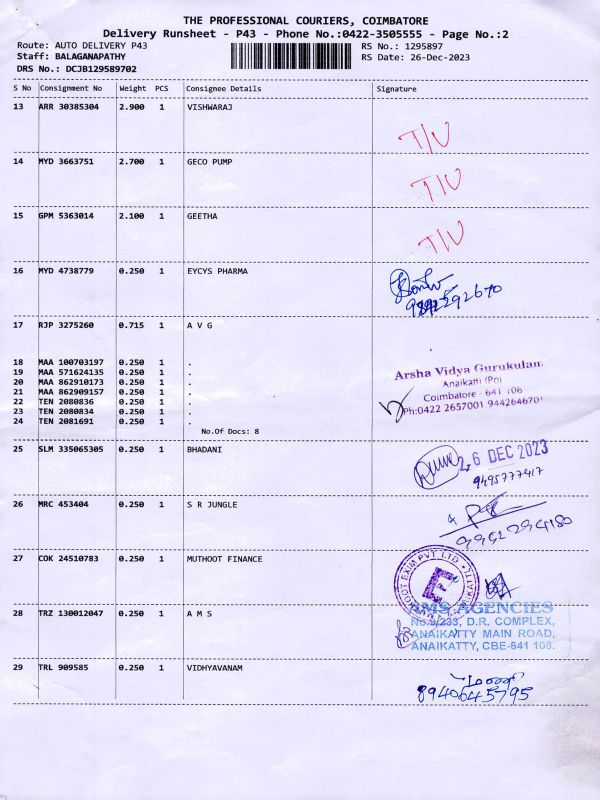 THE PROFESSIONAL COURIERS, COIMBATORE
Delivery Runsheet - P43 - Phone No.:0422-3505555 - Page No.:2
Route: AUTO DELIVERY P43 RS No.: 1295897
Staff: BALAGANAPATHY RS Date: 26-Dec-2023
DRS No.: DCJB129589702
S No Consignment No Weight PCS Consignee Details Signature
13 ARR 30385304 2.900 1 VISHWARAJ
T/U
14 MYD 3663751 2.700 1 GECO PUMP
T/U
15 GPM 5363014 2.100 1 GEETHA
T/U
16 MYD 4738779 0.250 1 EYCYS PHARMA
17 RJP 3275260 0.715 1 A V G
18 MAA 100703197 0.250 1 .
19 MAA 571624135 0.250 1 .
20 MAA 862910173 0.250 1 .
21 MAA 862909157 0.250 1 .
22 TEN 2080836 0.250 1 .
23 TEN 2080834 0.250 1 .
24 TEN 2081691 0.250 1 .
No.Of Docs: 8
Arsha Vidya Gurukulam
Anaikatti (Po)
Coimbatore - 641 108
Ph:0422 2657001 944264670
25 SLM 335065305 0.250 1 BHADANI
26 DEC 2023
9495777417
26 MRC 453404 0.250 1 S R JUNGLE
27 COK 24510783 0.250 1 MUTHOOT FINANCE
EXIM PVT LTD
28 TRZ 130012047 0.250 1 A M S
AMS AGENCIES
No.9/233, D.R. COMPLEX,
ANAIKATTY MAIN ROAD,
ANAIKATTY, CBE-641 108.
29 TRL 909585 0.250 1 VIDHYAVANAM
8940645795